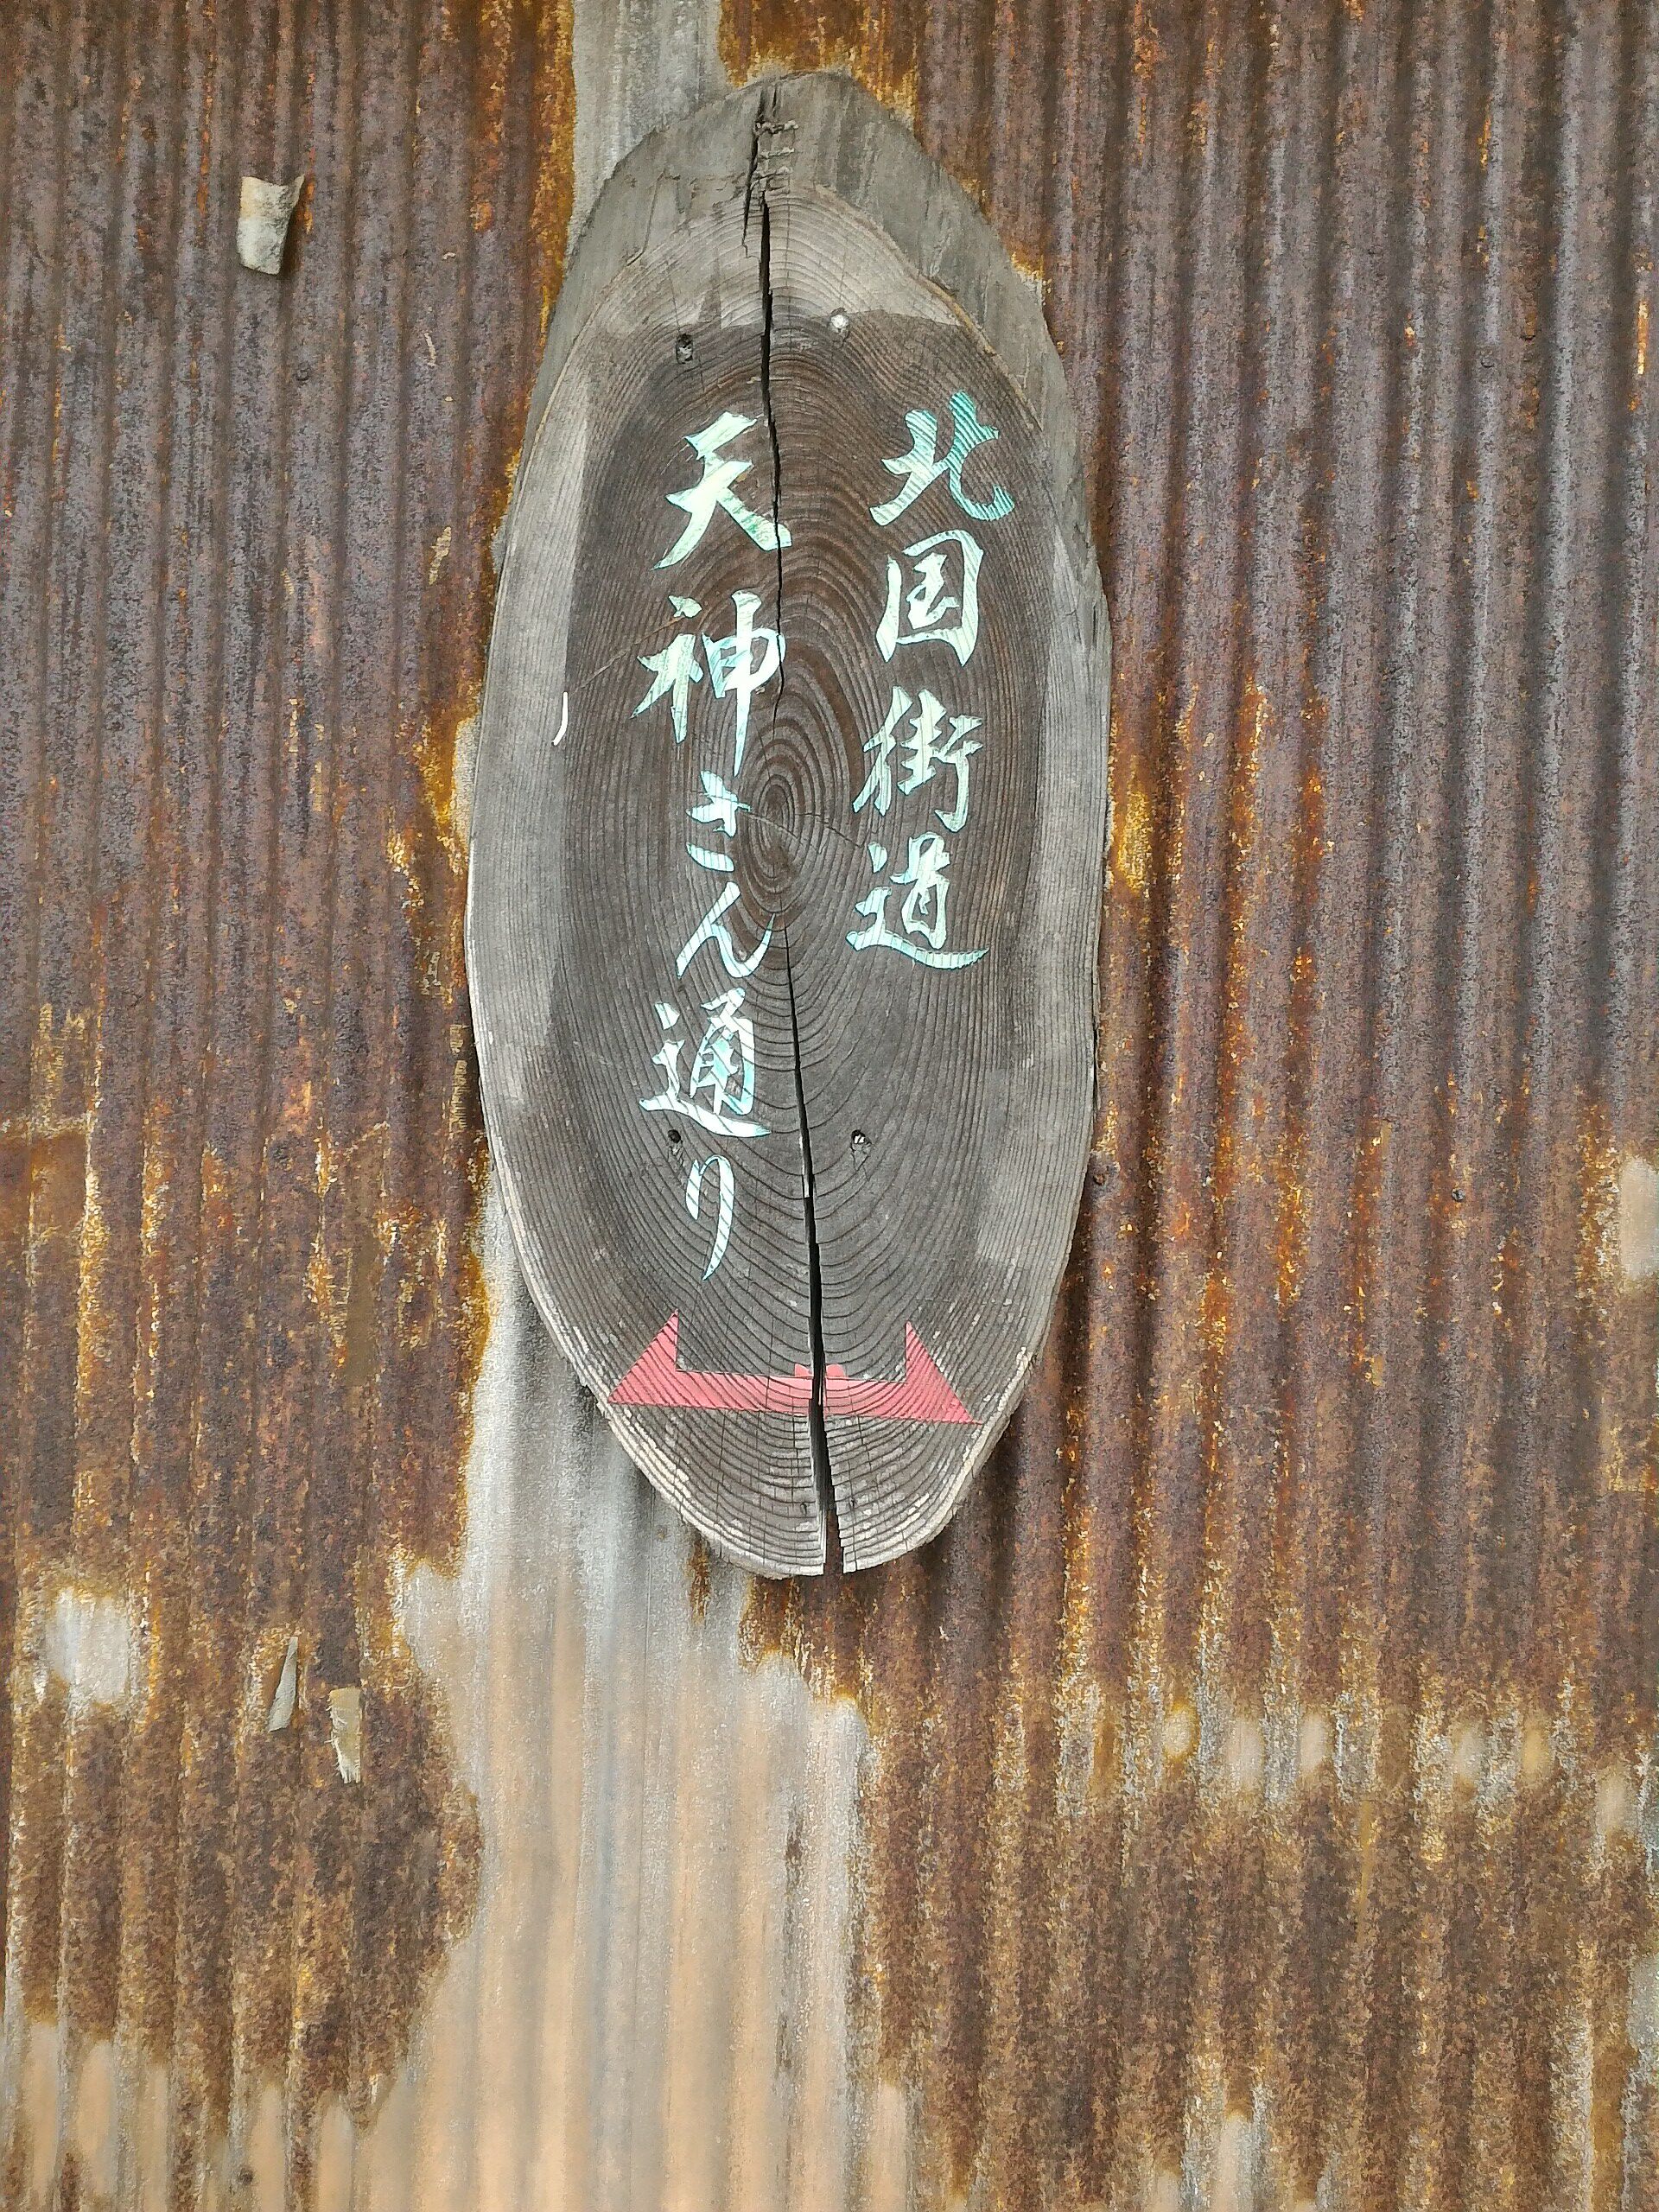 北国街道
天神さん通り